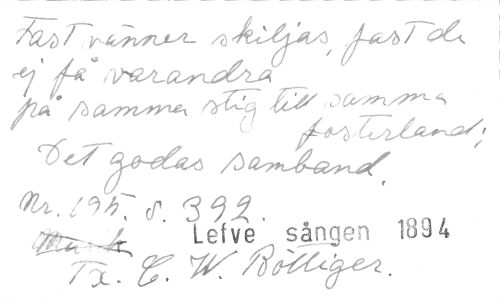 Fast vänner skiljas, fast de
ej få varandra
på samma stig till samma
fosterland;
Det godas samband.
Nr. 195. s. 392.
Lefve sången 1894
Musik
Tx. C. W. Böttiger.